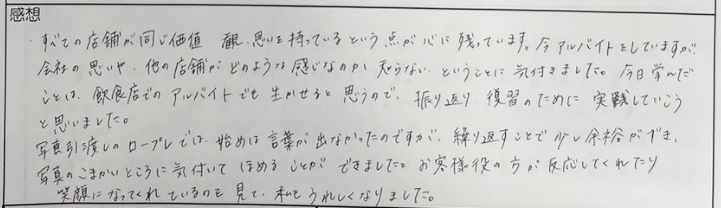 感想
すべての店舗が同じ価値観、思いを持っているという点が心に残っています。今アルバイトをしていますが、
会社の思いや、他の店舗がどのような感じなのか知らない、ということに気付きました。今日学んだ
ことは、飲食店でのアルバイトでも生かせると思うので、振り返り復習のために実践していこう
と思いました。
写真引渡しのロープレでは、始めは言葉が出なかったのですが、繰り返すことで少し余裕ができ、
写真のこまかいところに気付いてほめることができました。お客様役の方が反応してくれたり
笑顔になってくれているのを見て、私もうれしくなりました。